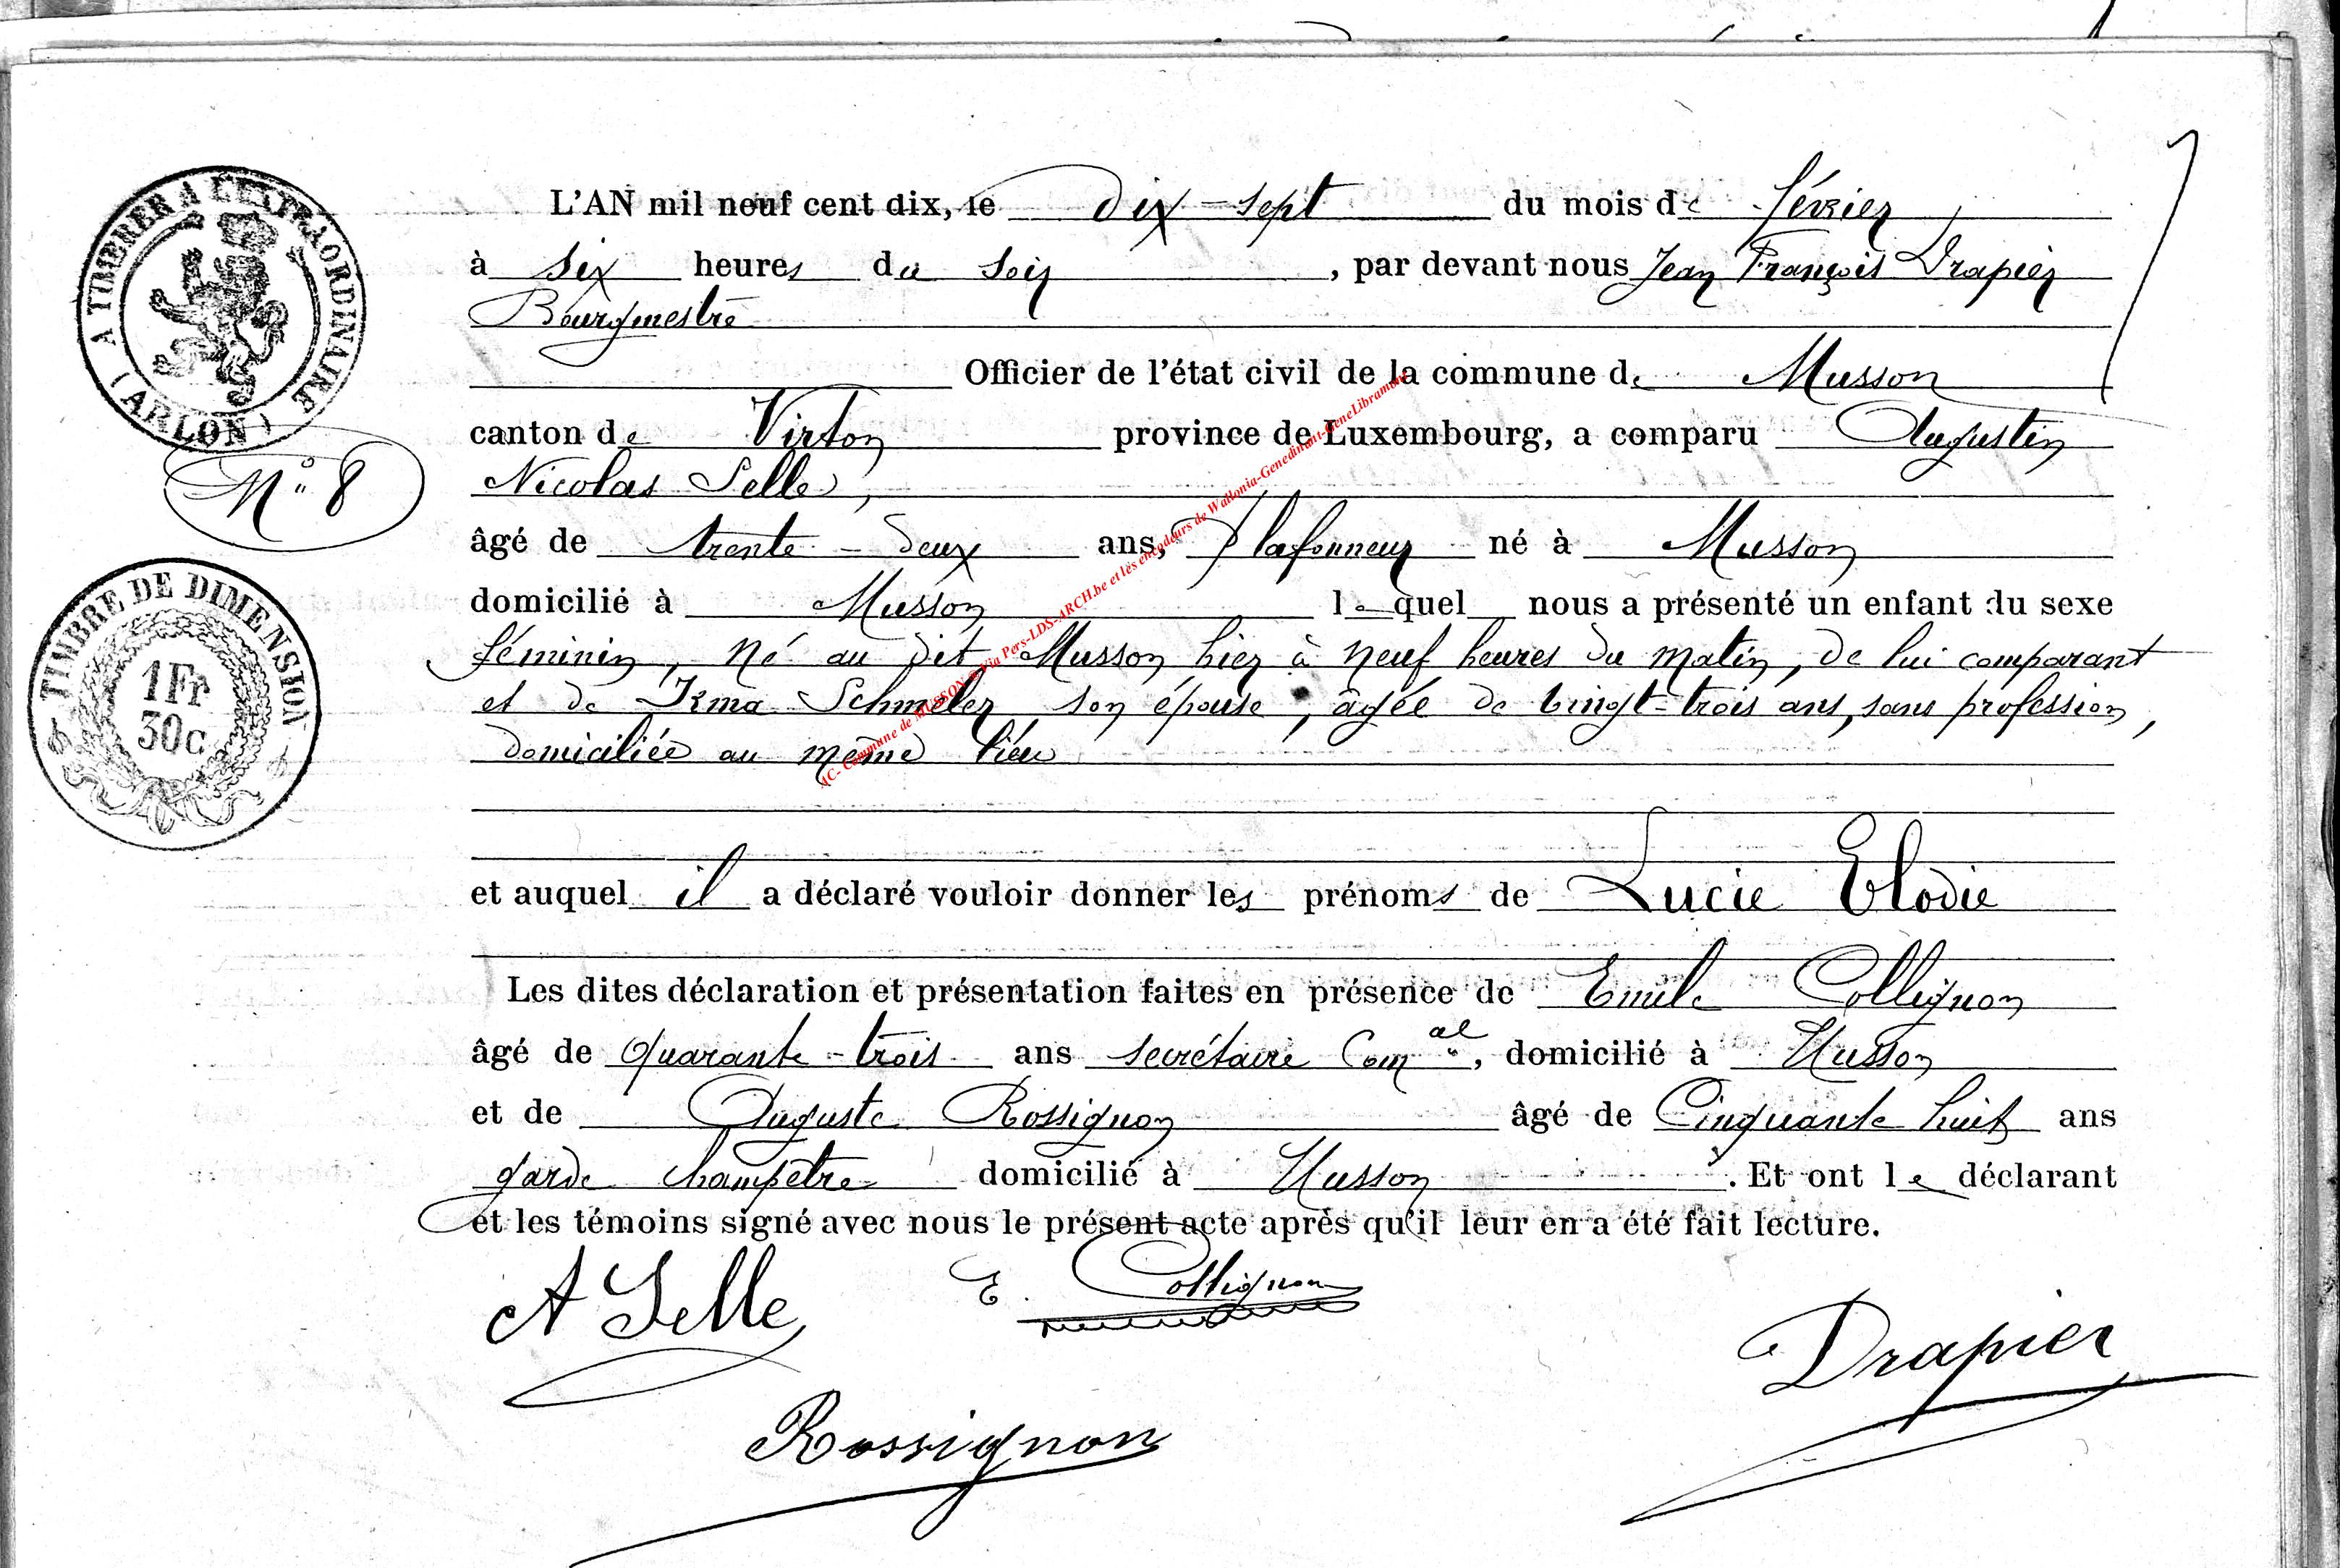 A TIMBRER A L'EXTRAORDINAIRE
(ARLON)
N° 8
TIMBRE DE DIMENSION
1Fr
30c
L'AN mil neuf cent dix, le dix-sept du mois de février
à six heures du soir, par devant nous Jean François Drapier
Bourgmestre
Officier de l'état civil de la commune de Musson
canton de Virton province de Luxembourg, a comparu Augustin
Nicolas Selle,
âgé de trente-deux ans, Plafonneur né à Musson
domicilié à Musson lequel nous a présenté un enfant du sexe
féminin, né au dit Musson hier à neuf heures du matin, de lui comparant
et de Irma Schmeler son épouse, âgée de vingt-trois ans, sans profession,
domiciliée au même lieu
et auquel il a déclaré vouloir donner les prénoms de Lucie Elodie
Les dites déclaration et présentation faites en présence de Emile Collignon
âgé de quarante-trois ans secrétaire Comal, domicilié à Musson
et de Auguste Rossignon âgé de Cinquante huit ans
garde champêtre domicilié à Musson. Et ont le déclarant
et les témoins signé avec nous le présent acte après qu'il leur en a été fait lecture.
A Selle E. Collignon
Drapier
Rossignon
AC- Commune de MUSSON - Via Pers-LDS-ARCH.be et les encodeurs de Wallonia-Genedinant-GeneLibramont